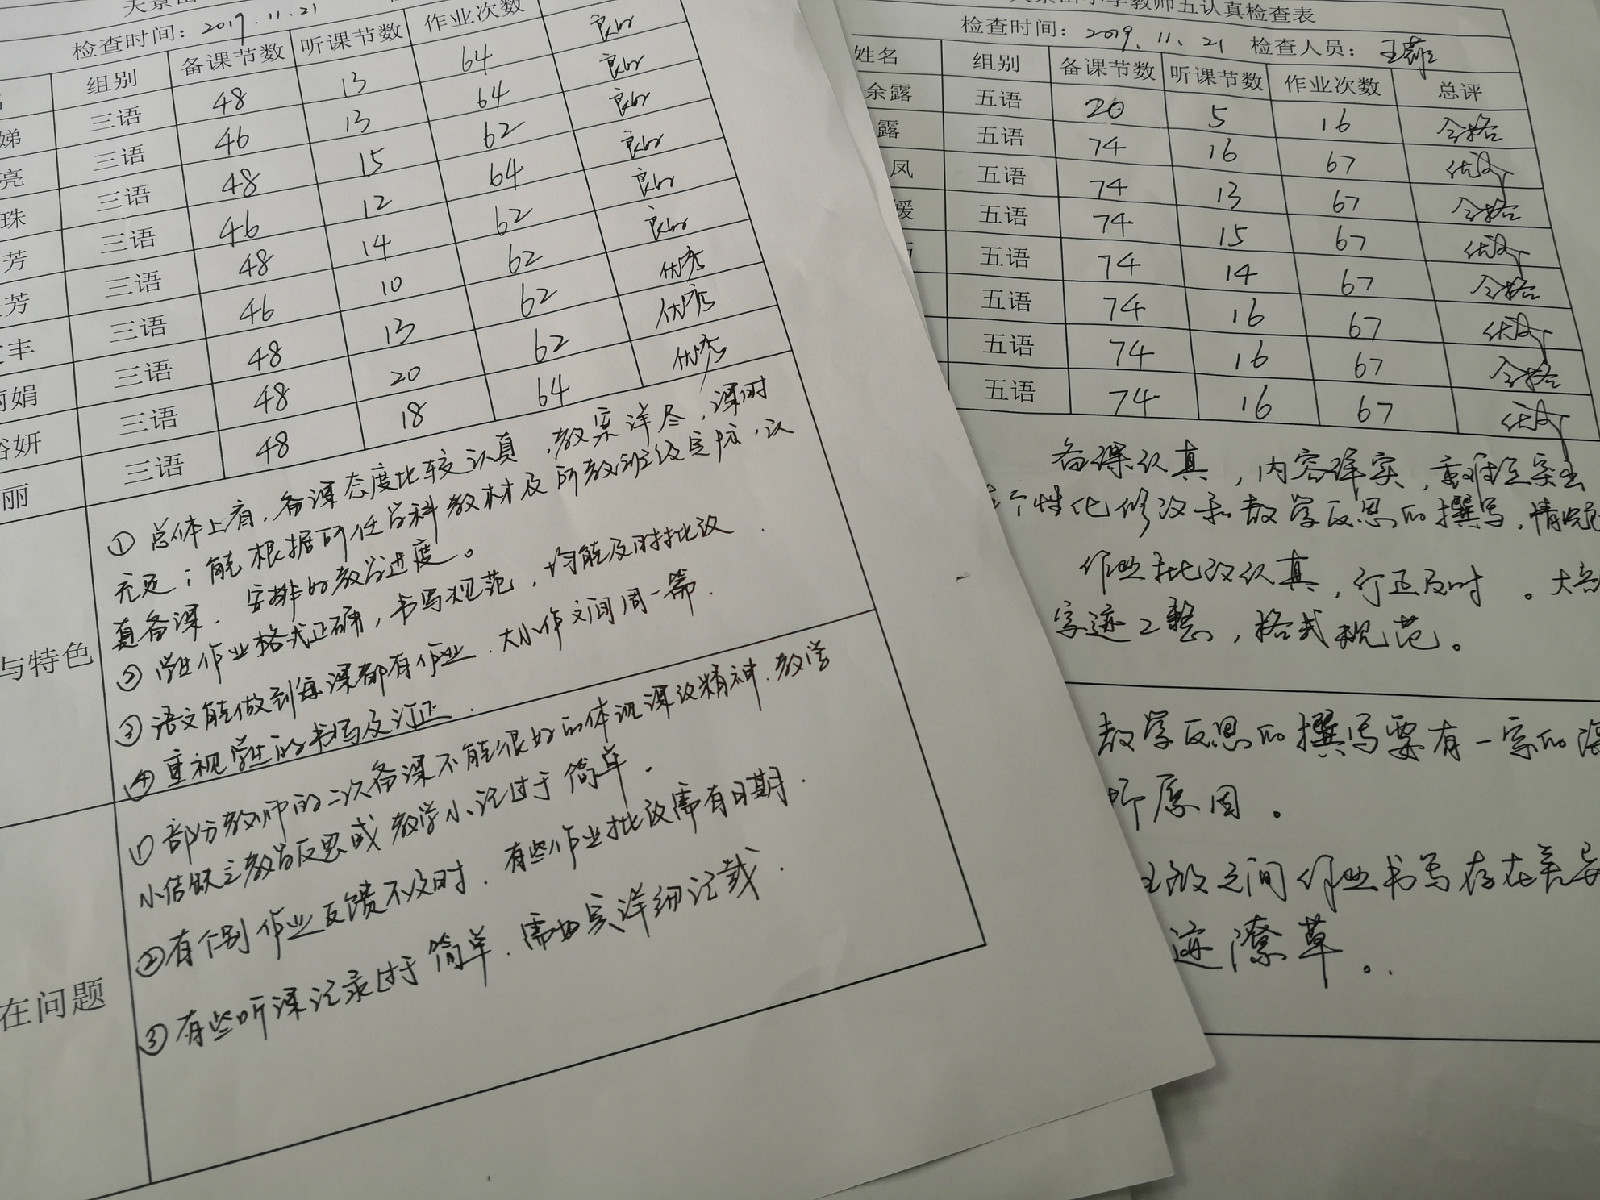 检查时间：2019.11.21
组别 备课节数 听课节数 作业次数
娣 三语 48 13 64 良好
亮 三语 46 13 64 良好
珠 三语 48 15 62 良好
芳 三语 46 12 64 良好
芳 三语 48 14 62 良好
丰 三语 46 10 62 良好
娟 三语 48 13 62 优秀
妍 三语 48 20 62 优秀
丽 三语 48 18 64 优秀
与特色
①总体上看，备课态度比较认真，教案详尽，课时
充足；能根据所任学科教材及所教班级定位，认
真备课，安排的教学进度。
②学生作业格式正确，书写规范，均能及时批改．
③语文能做到每课都有作业．大小作文间周一篇．
④重视学生的书写及订正．
在问题
①部分教师的二次备课不能很好的体现课改精神，教学
小结缺乏教学反思或教学小记过于简单．
②有个别作业反馈不及时．有些作业批改需有日期．
③有些听课记录过于简单，需如实详细记载．
教师五认真检查表
检查时间：2019.11.21 检查人员：王
姓名 组别 备课节数 听课节数 作业次数 总评
余露 五语 20 5 16 合格
露 五语 74 16 67 优良
凤 五语 74 13 67 合格
媛 五语 74 15 67 优良
五语 74 14 67 合格
五语 74 16 67 优良
五语 74 16 67 合格
五语 74 16 67 优良
备课认真，内容详实，重难点突出
个性化修改和教学反思的撰写，情况
作业批改认真，订正及时。大
字迹工整，格式规范。
教学反思的撰写要有一定的深
所原因。
之间作业书写存在差异
迹潦草。